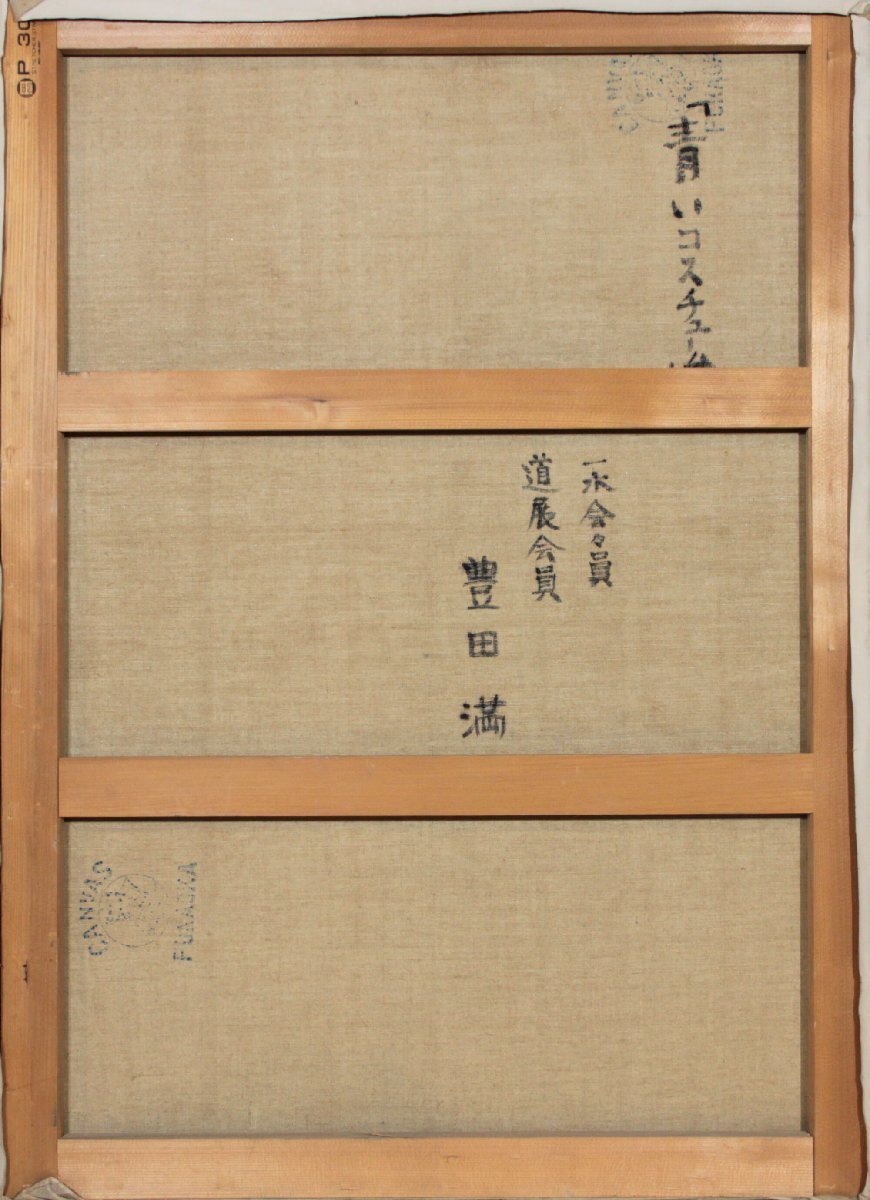 「青いコスチュー
一水会々員
道展会員
豊田満
P 30
CANVAS
FUNAOKA